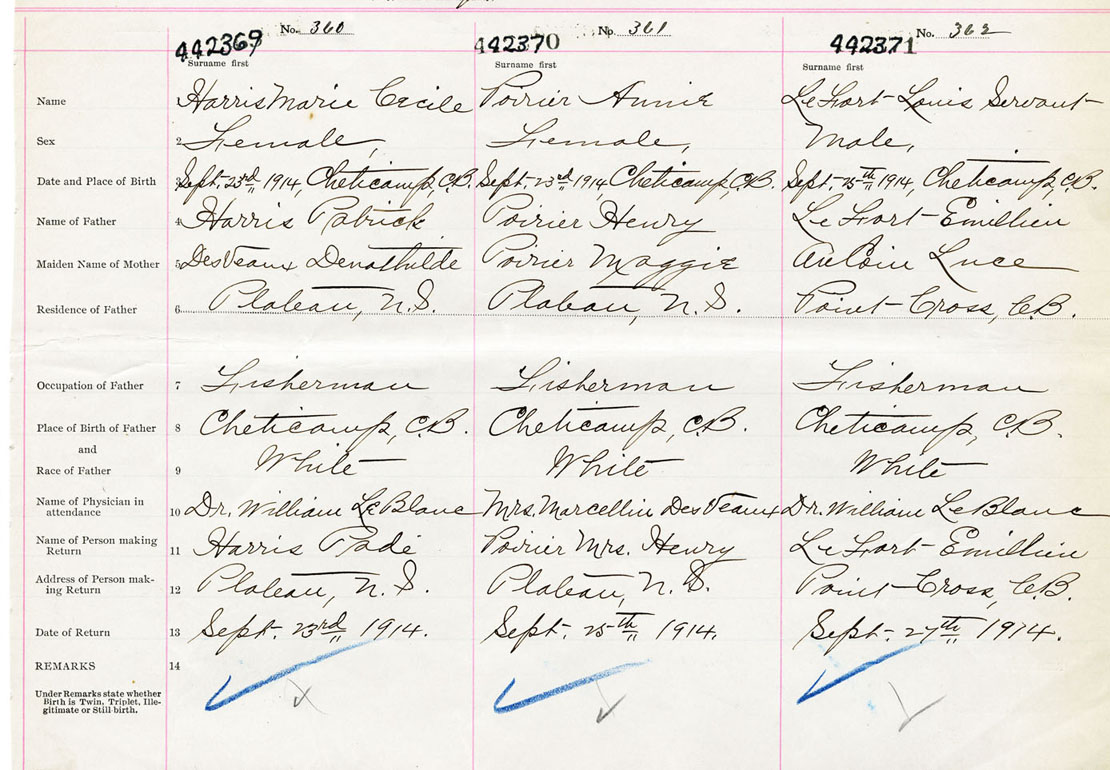 No. 360 No. 361 No. 362
442369 442370 442371
Surname first Surname first Surname first
Name Harris Marie Cecile Poirier Annie LeFort Louis Servant
Sex 2 Female, Female, Male,
Date and Place of Birth 3 Sept. 23rd 1914, Cheticamp, C.B. Sept. 23rd 1914, Cheticamp, C.B. Sept. 25th 1914, Cheticamp, C.B.
Name of Father 4 Harris Patrick Poirier Henry LeFort Emillien
Maiden Name of Mother 5 DesVeaux Denathilde Poirier Maggie AuCoin Luce
Residence of Father 6 Plateau, N.S. Plateau, N.S. Point Cross, C.B.
Occupation of Father 7 Fisherman Fisherman Fisherman
Place of Birth of Father 8 Cheticamp, C.B. Cheticamp, C.B. Cheticamp, C.B.
and
Race of Father 9 White White White
Name of Physician in
attendance 10 Dr. William LeBlanc Mrs. Marcellin DesVeaux Dr. William LeBlanc
Name of Person making
Return 11 Harris Poirier Mrs. Henry LeFort Emillien
Address of Person mak-
ing Return 12 Plateau, N.S. Plateau, N.S. Point Cross, C.B.
Date of Return 13 Sept. 23rd 1914. Sept. 25th 1914. Sept. 27th 1914.
REMARKS 14
Under Remarks state whether
Birth is Twin, Triplet, Ille-
gitimate or Still-birth.